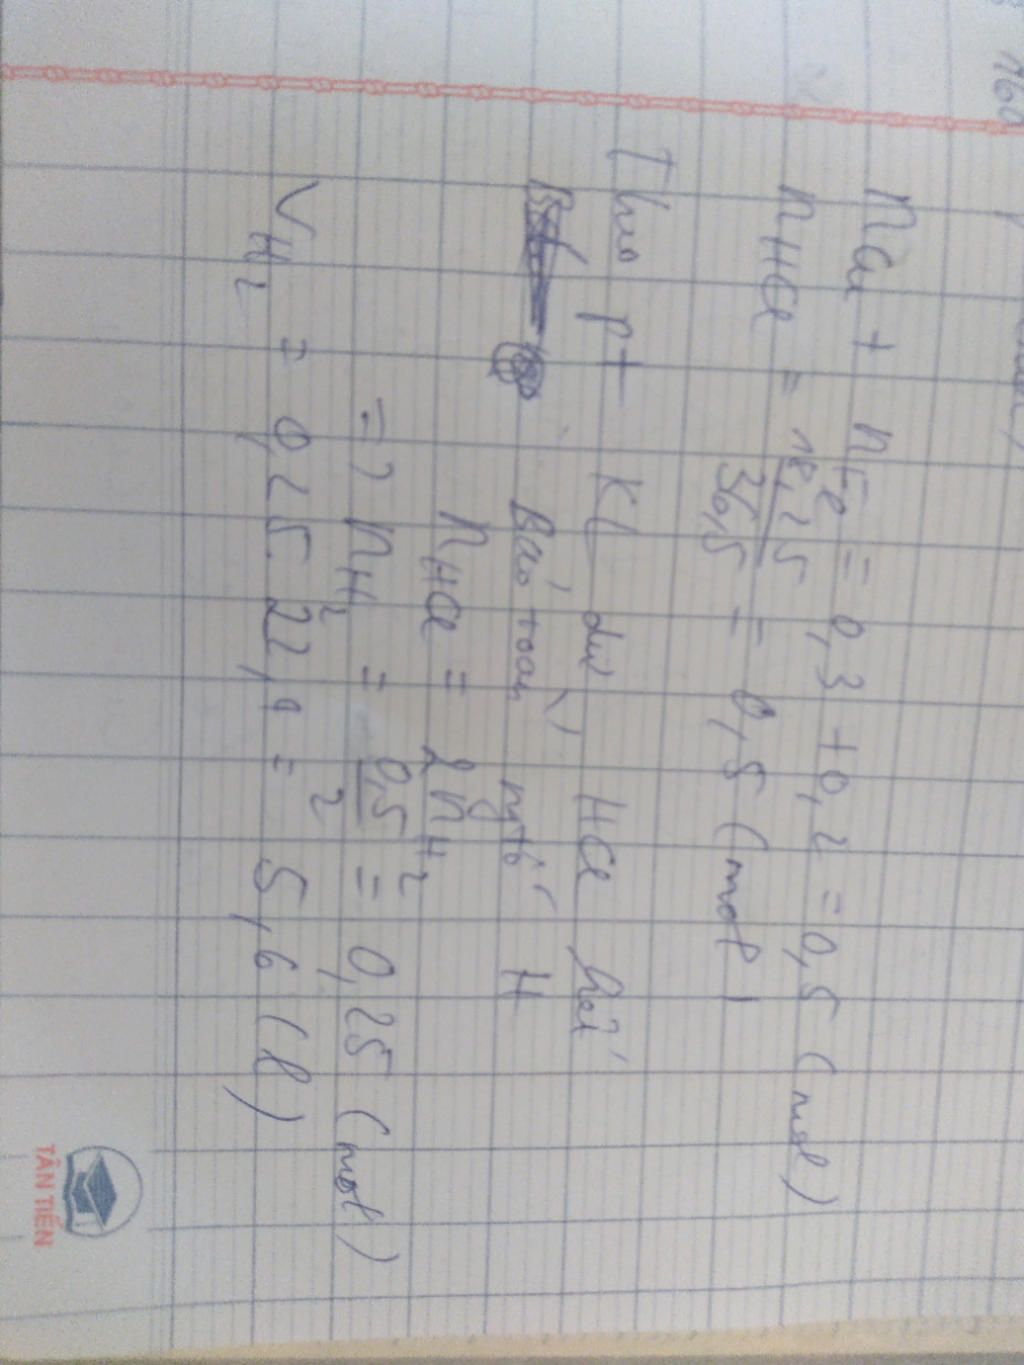 160
nCu + nFe = 0,3 + 0,2 = 0,5 (mol)
nHCl = 18,25 / 36,5 = 0,5 (mol)
Theo pt KL dư HCl hết
Bảo toàn ngtố H
nHCl = 2nH2
=> nH2 = 0,5 / 2 = 0,25 (mol)
VH2 = 0,25. 22,4 = 5,6 (l)
TÂN TIẾN